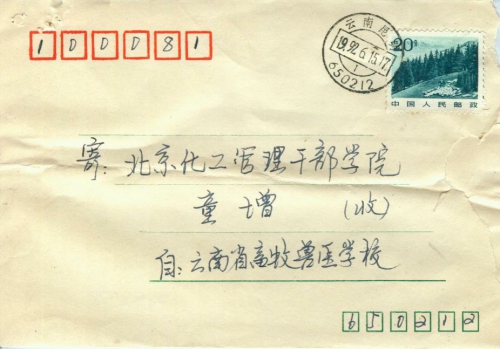 100081
云南昆
1992.6.15.17
1
650212
20分
中国人民邮政
寄：北京化工管理干部学院
童增 （收）
自：云南省畜牧兽医学校
650212